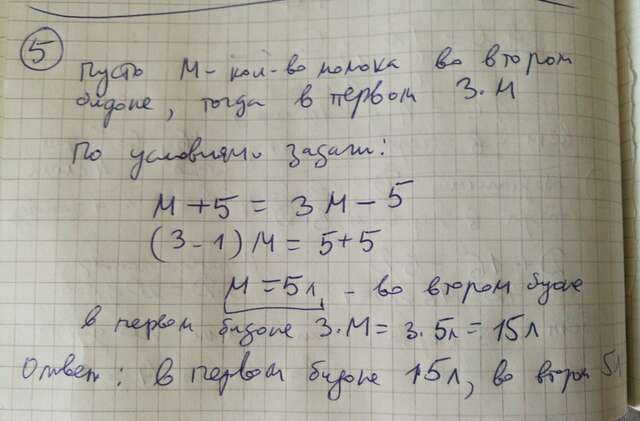 5
Пусть М - кол-во молока во втором
бидоне, тогда в первом 3·М
По условиям задачи:
М + 5 = 3 М - 5
(3 - 1) М = 5 + 5
М = 5л, - во втором
в первом бидоне 3·М = 3·5л = 15л
Ответ: в первом бидоне 15л, во втором 5л